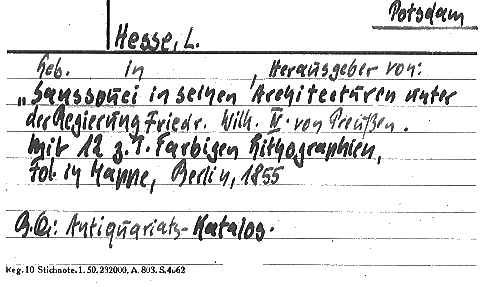 Potsdam
Hesse, L.
geb. in , Herausgeber von:
„Sanssouci in seinen Architecturen unter
der Regierung Friedr. Wilh. IV. von Preußen.
Mit 12 z.T. Farbigen Lithographien,
Fol. in Mappe, Berlin, 1855
B.Qu: Antiquariats-Katalog.
Reg. 10 Stichnote. 1. 50. 232000. A. 803. S. 4062